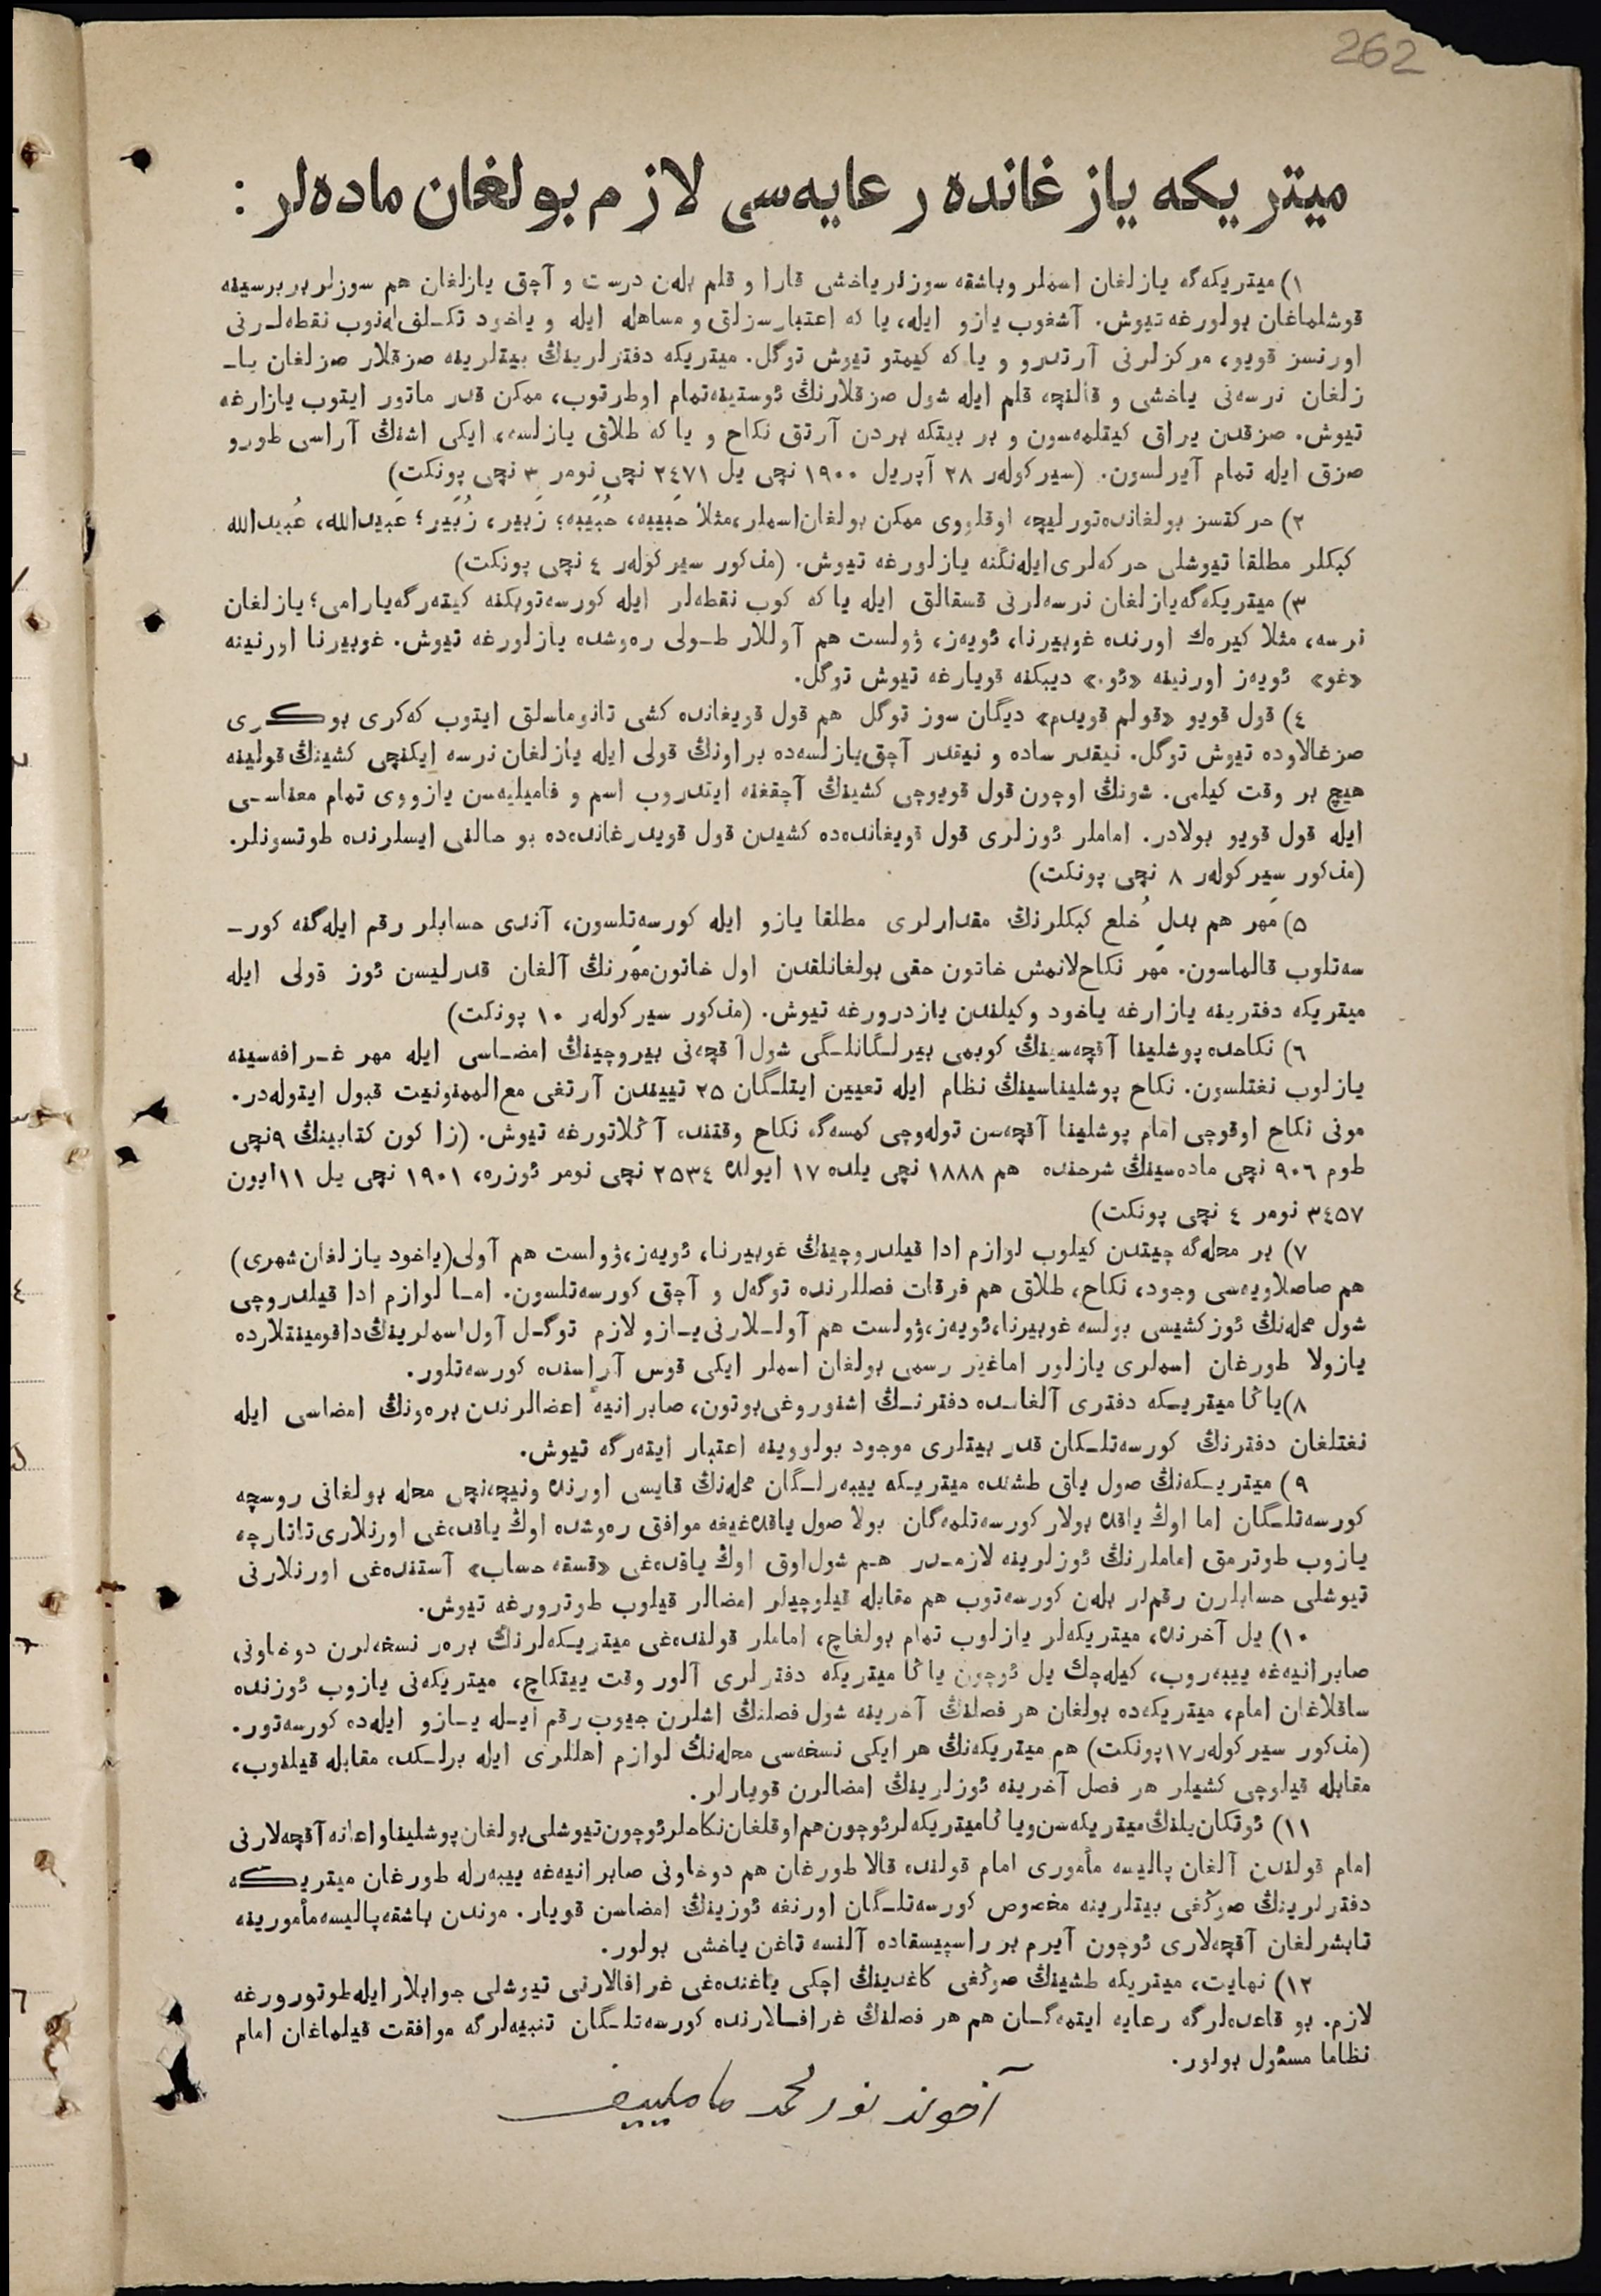 262
ميتريكه يازغانده رعايه‌سى لازم بولغان ماده‌لر :
١) ميتريكه‌گه يازلغان اسملر وباشقه سوزلر ياخشى قارا و قلم بله‌ن درست و آچق يازلغان هم سوزلر بر برسينه
قوشلماغان بولورغه تيوش. آشغوب يازو ايله، يا كه اعتبارسزلق و مساهله ايله و ياخود تكـلف له‌نوب نقطه‌لـرنى
اورنسز قويو، مركزلرنى آرتدرو و يا كه كيمتو تيوش توگل. ميتريكه دفترلرينڭ بيتلرينه صزقلار صزلغان يا‌ـ
زلغان نرسه‌نى ياخشى و قالنچه قلم ايله شول صزقلارنڭ ئوستينه تمام اوطرتوب، ممكن قدر ماتور ايتوب يازارغه
تيوش. صزقدن يراق كيتلمه‌سون و بر بيتكه بردن آرتق نكاح و يا كه طلاق يازلسه، ايكى اشنڭ آراسى طورو
صزق ايله تمام آيرلسون. (سيركولەر ٢٨ آپريل ١٩٠٠ نچى يل ٢٤٧١ نچى نومر ٣ نچى پونكت)
٢) حركتسز بولغانده تورليچه اوقلووى ممكن بولغان اسملر، مثلا حَبيبه، حُبيبه؛ زَبير، زُبير؛ عَبيدالله، عُبيدالله
كبكلر مطلقا تيوشلى حركه‌لرى ايله‌نگنه يازلورغه تيوش. (مذكور سيركولەر ٤ نچى پونكت)
٣) ميتريكه‌گه يازلغان نرسه‌لرنى قسقالق ايله يا كه كوب نقطه‌لر ايله كورسه‌توبكنه كيته‌رگه يارامى؛ يازلغان
نرسه، مثلا كيره‌ك اورنده غوبيرنا، ئويه‌ز، ۋولست هم آوللار طـولى ره‌وشده يازلورغه تيوش. غوبيرنا اورنينه
«غو» ئويه‌ز اورنينه «ئو.» ديبكنه قويارغه تيوش توگل.
٤) قول قويو «قولم قويدم» ديگان سوز توگل هم قول قويغانده كشى تانوماسلق ايتوب كه‌كرى بوكرى
صزغالاوده تيوش توگل. نيقدر ساده و نيقدر آچق يازلسه‌ده براونڭ قولى ايله يازلغان نرسه ايكنچى كشينڭ قولينه
هيچ بر وقت كيلمى. شونڭ اوچون قول قويوچى كشينڭ آچقغنه ايتدروب اسم و فاميليه‌سن يازووى تمام معناسـى
ايله قول قويو بولادر. اماملر ئوزلرى قول قويغانده‌ده كشيدن قول قويدرغانده‌ده بو حالنى ايسلرنده طوتسونلر.
(مذكور سيركولەر ٨ نچى پونكت)
٥) مَهر هم بدلِ خُلع كبكلرنڭ مقدارلرى مطلقا يازو ايله كورسه‌تلسون، آندى حسابلر رقم ايله‌گنه كور‌ـ
سه‌تلوب قالماسون. مَهر نكاح‌لانمش خاتون حقى بولغانلقدن اول خاتون مَهرنڭ آلغان قدرليسن ئوز قولى ايله
ميتريكه دفترينه يازارغه ياخود وكيلندن يازدرورغه تيوش. (مذكور سيركولەر ١٠ پونكت)
٦) نكاحده پوشلينا آقچه‌سينڭ كوبمى بيرلـگانلـگى شول آقچه‌نى بيروچينڭ امضـاسى ايله مهر غـرافه‌سينه
يازلوب نغتلسون. نكاح پوشليناسينڭ نظام ايله تعيين ايتلـگان ٢٥ تييندن آرتغى مع‌الممنونيت قبول ايتوله‌در.
مونى نكاح اوقوچى امام پوشلينا آقچه‌سن توله‌وچى كمسه‌گه نكاح وقتنده آڭلاتورغه تيوش. (زاكون كتابينڭ ٩نچى
طوم ٩٠٦ نچى ماده‌سينڭ شرحنده هم ١٨٨٨ نچى يلده ١٧ ايولده ٢٥٣٤ نچى نومر ئوزره، ١٩٠١ نچى يل ١١ايون
٣٤٥٧ نومر ٤ نچى پونكت)
٧) بر محله‌گه چيتدن كيلوب لوازم ادا قيلدروچينڭ غوبيرنا، ئويه‌ز، ۋولست هم آولى (ياخود يازلغان شهرى)
هم صاصلاويه‌سى وجود، نكاح، طلاق هم فرقات فصللرنده توگه‌ل و آچق كورسه‌تلسون. امـا لوازم ادا قيلدروچى
شول محله‌نڭ ئوز كشيسى بولسه غوبيرنا، ئويه‌ز، ۋولست هم آولـلارنى يـازو لازم توگـل آول اسملرينڭ داقومينتلارده
يازولا طورغان اسملرى يازلور اماغير رسمى بولغان اسملر ايكى قوس آراسنده كورسه‌تلور.
٨) ياڭا ميتريـكه دفترى آلغانـده دفترنـڭ اشنوروغى بوتون، صابرانيه‌ٔ اعضالرندن بره‌ونڭ امضاسى ايله
نغتلغان دفترنڭ كورسه‌تلـكان قدر بيتلرى موجود بولووينه اعتبار ايته‌رگه تيوش.
٩) ميتريـكه‌نڭ صول ياق طشنده ميتريـكه ييبه‌رلـگان محله‌نڭ قايسى اورنده ونيچه‌نچى محله بولغانى روسچه
كورسه‌تلـگان اما اوڭ ياقده بولار كورسه‌تلمه‌گان. بولا صول ياقده‌غيغه موافق ره‌وشده اوڭ ياقده‌غى اورنلارى تاتارچه
يازوب طوترمق اماملرنڭ ئوزلرينه لازمـدر هـم شول‌اوق اوڭ ياقده‌غى «قسقه حساب» آستنده‌غى اورنلارنى
تيوشلى حسابلرن رقم‌لر بله‌ن كورسه‌توب هم مقابله قيلوچيلر امضالر قيلوب طوترورغه تيوش.
١٠) يل آخرنده، ميتريكه‌لر يازلوب تمام بولغاچ، اماملر قولنده‌غى ميتريـكه‌لرنڭ بره‌ر نسخه‌لرن دوخاونى
صابرانيه‌غه ييبه‌روب، كيله‌چك يل ئوچون ياڭا ميتريكه دفترلرى آلور وقت ييتكاچ، ميتريكه‌نى يازوب ئوزنده
ساقلاغان امام، ميتريكه‌ده بولغان هر فصلنڭ آخرينه شول فصلنڭ اشلرن جيوب رقم ايـله يـازو ايله‌ده كورسه‌تور.
(مذكور سيركولەر ١٧پونكت) هم ميتريكه‌نڭ هر ايكى نسخه‌سى محله‌نڭ لوازم اهللرى ايله برلـكده مقابله قيلنوب،
مقابله قيلوچى كشيلر هر فصل آخرينه ئوزلرينڭ امضالرن قويارلر.
١١) ئوتكان يلنڭ ميتريكه‌سن وياڭا ميتريكه‌لر ئوچون هم اوقلغان نكاحلر ئوچون تيوشلى بولغان پوشلينا واعانه آقچه‌لارنى
امام قولندن آلغان پاليسه مأمورى امام قولنده قالا طورغان هم دوخاونى صابرانيه‌غه ييبه‌رله طورغان ميتريكه
دفترلرينڭ صوڭغى بيتلرينه مخصوص كورسه‌تلـگان اورنغه ئوزينڭ امضاسن قويار. موندن باشقه پاليسه مأمورينه
تابشرلغان آقچه‌لارى ئوچون آيرم بر راسپيسقاده آلنسه تاغن ياخشى بولور.
١٢) نهايت، ميتريكه طشينڭ صوڭغى كاغدينڭ اچكى ياغنده‌غى غرافالارنى تيوشلى جوابلار ايله طوتورورغه
لازم. بو قاعده‌لرگه رعايه ايتمه‌گـان هم هر فصلنڭ غرافـالارنده كورسه‌تلـگان تنبيه‌لرگه موافقت قيلماغان امام
نظاما مسئول بولور.
آخوند نورمحمد مامليیف